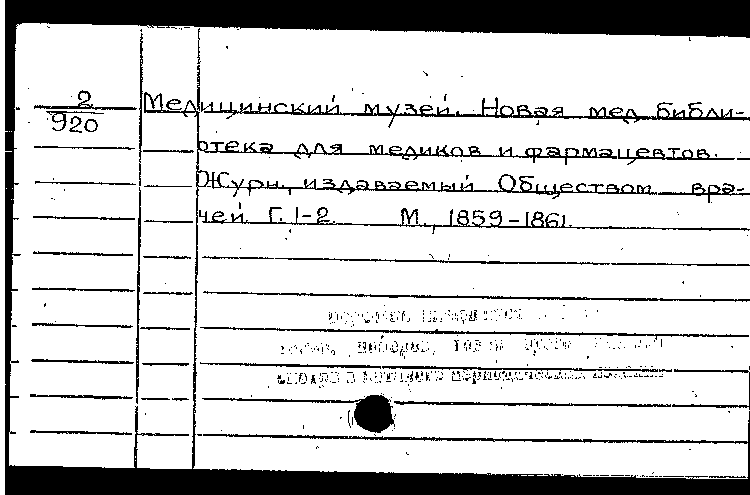 2
920
Медицинский музей. Новая мед. библи-
отека для медиков и фармацевтов.
Журн., издаваемый Обществом вра-
чей Г. 1-2 М., 1859-1861.